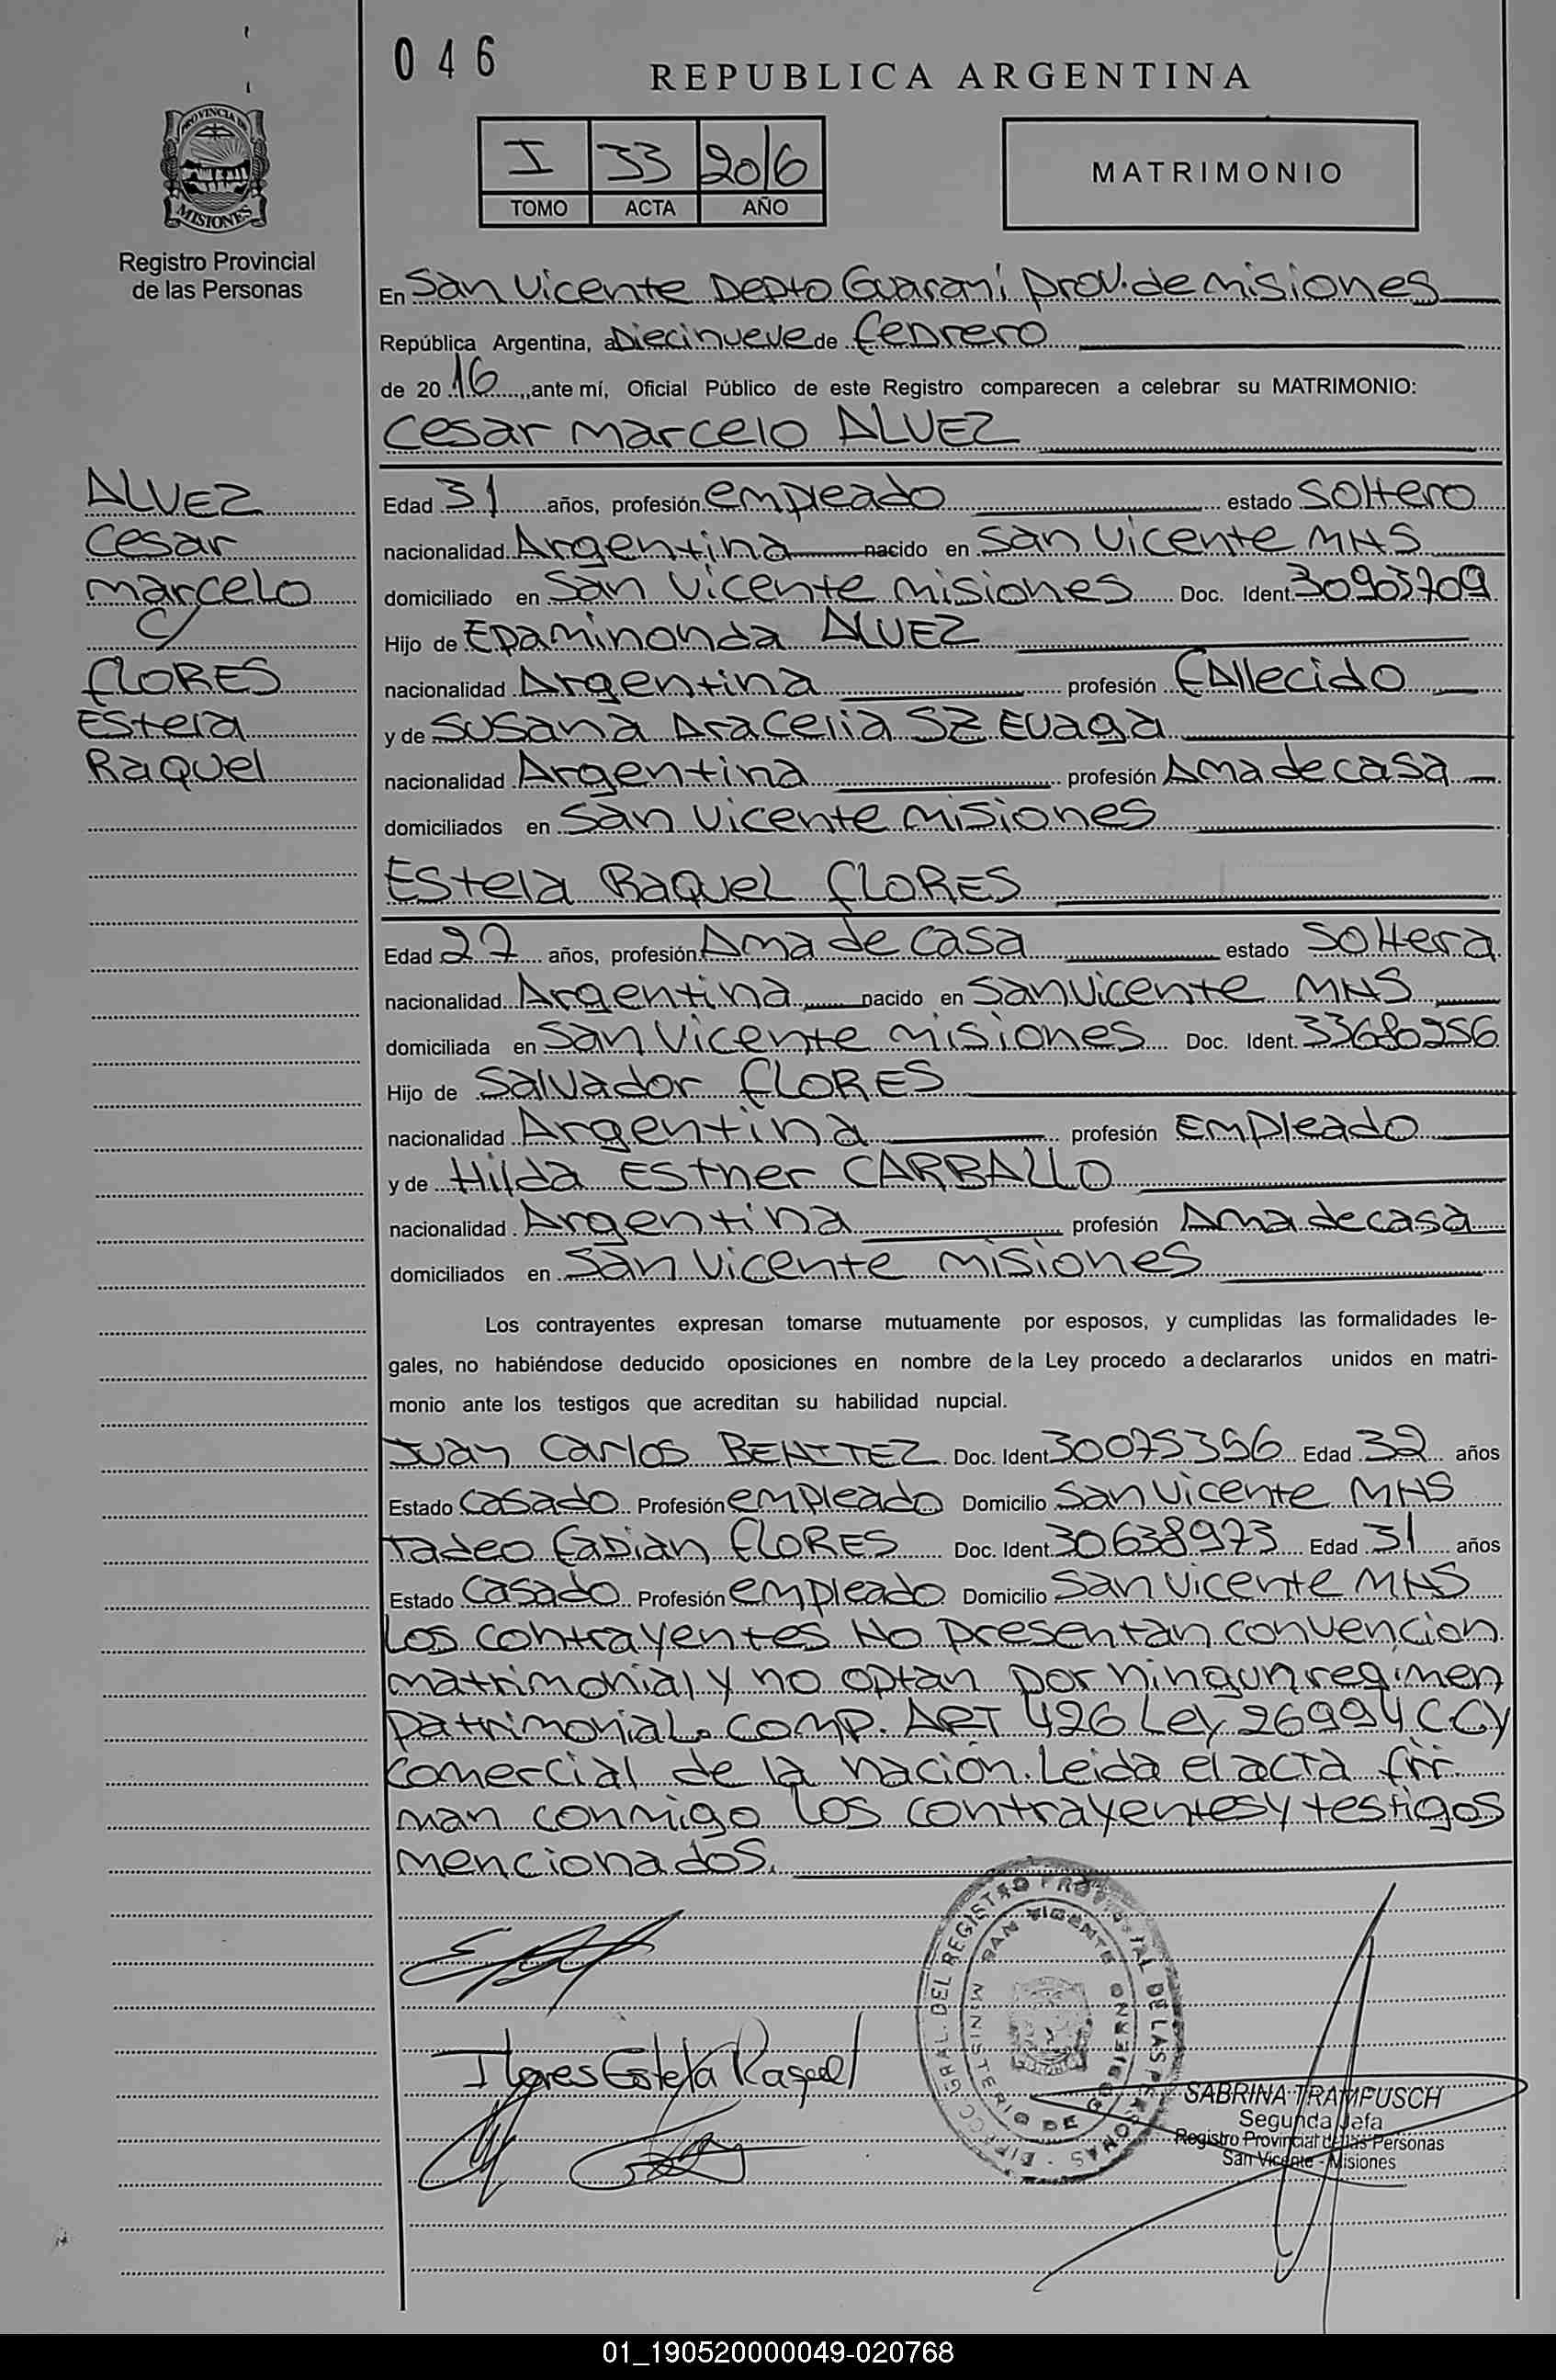 046
REPUBLICA ARGENTINA
I 33 2016
TOMO ACTA AÑO
MATRIMONIO
PROVINCIA DE
MISIONES
Registro Provincial
de las Personas
En San Vicente Depto Guaraní prov. de misiones
República Argentina, a Diecinueve de febrero
de 2016, ante mí, Oficial Público de este Registro comparecen a celebrar su MATRIMONIO:
Cesar Marcelo ALVEZ
ALVEZ
Cesar
Marcelo
C/
FLORES
Estela
Raquel
Edad 31 años, profesión empleado estado soltero
nacionalidad Argentina nacido en San Vicente MNS
domiciliado en San Vicente misiones Doc. Ident. 30903709
Hijo de Epaminonda ALVEZ
nacionalidad Argentina profesión fallecido
y de Susana Aracelia SZEVAGA
nacionalidad Argentina profesión Ama de casa
domiciliados en San Vicente misiones
Estela Raquel FLORES
Edad 27 años, profesión Ama de casa estado soltera
nacionalidad Argentina nacido en San Vicente MNS
domiciliada en San Vicente misiones Doc. Ident. 33680256
Hijo de Salvador FLORES
nacionalidad Argentina profesión Empleado
y de Hilda Esther CARBALLO
nacionalidad Argentina profesión Ama de casa
domiciliados en San Vicente misiones
Los contrayentes expresan tomarse mutuamente por esposos, y cumplidas las formalidades le-
gales, no habiéndose deducido oposiciones en nombre de la Ley procedo a declararlos unidos en matri-
monio ante los testigos que acreditan su habilidad nupcial.
Juan Carlos BENITEZ Doc. Ident 30075356 Edad 32 años
Estado Casado Profesión empleado Domicilio San Vicente MNS
Tadeo Fabian FLORES Doc. Ident 30638973 Edad 31 años
Estado Casado Profesión empleado Domicilio San Vicente MNS
Los contrayentes No presentan convencion
matrimonial y no optan por ningun regimen
patrimonial. comp. ART 426 Ley 26994 C.C y
Comercial de la nación. Leida el acta fir
man conmigo los contrayentes y testigos
mencionados.
DIRECC. GRAL. DEL REGISTRO PROVINCIAL DE LAS PERSONAS
MINISTERIO DE GOBIERNO
SAN VICENTE
Flores Estela Raquel
SABRINA TRAMPUSCH
Segunda Jefa
Registro Provincial de las Personas
San Vicente - Misiones
01_190520000049-020768